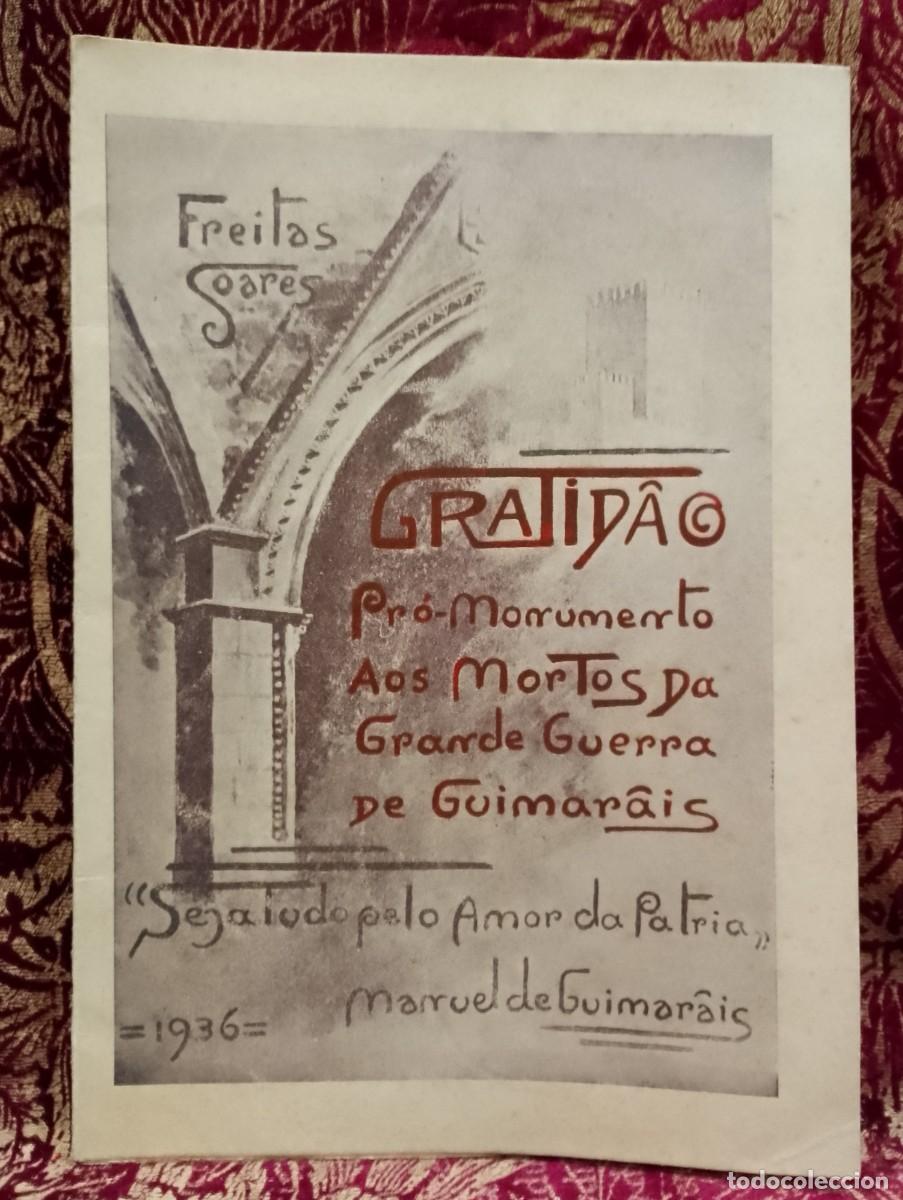 Freitas
Soares
GRATIDÂO
Pró-Monumento
Aos Mortos Da
Grande Guerra
De Guimarâis
“Seja tudo pelo Amor da Patria„
Manuel de Guimarâis
=1936=
todocoleccion